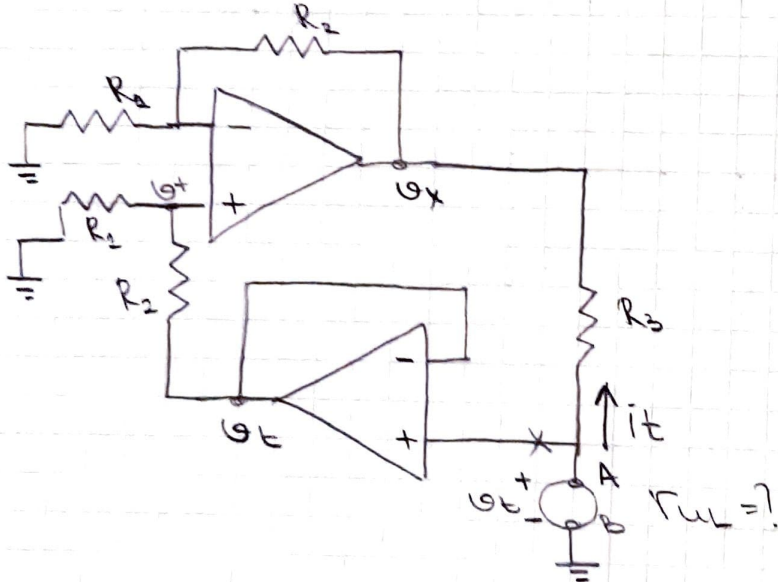 R2
R1
−
υ+
+
υx
R1
R2
R3
−
υt
+
it
+
A
υt
−
B
rul = ?